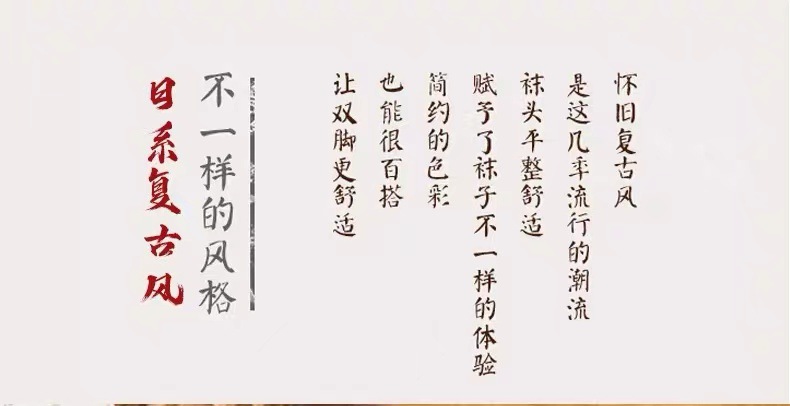 怀旧复古风
是这几年流行的潮流
袜头平整舒适
赋予了袜子不一样的体验
简约的色彩
也能很百搭
让双脚更舒适
不一样的风格
日系复古风